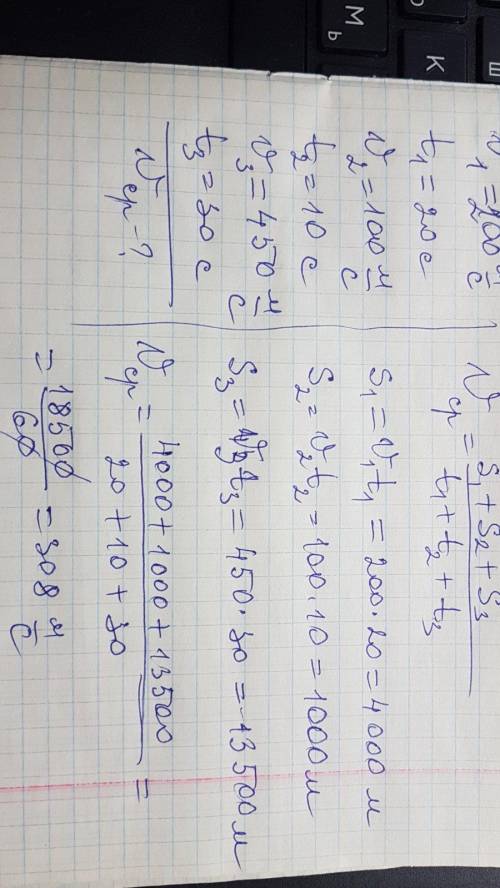 υ₁ = 200 м/с
t₁ = 20 с
υ₂ = 100 м/с
t₂ = 10 с
υ₃ = 450 м/с
t₃ = 30 с
υср - ?
υср = (S₁ + S₂ + S₃)/(t₁ + t₂ + t₃)
S₁ = υ₁t₁ = 200·20 = 4000 м
S₂ = υ₂t₂ = 100·10 = 1000 м
S₃ = υ₃t₃ = 450·30 = 13500 м
υср = (4000 + 1000 + 13500)/(20 + 10 + 30) =
= 18500/60 = 308 м/с
М
Ь
К